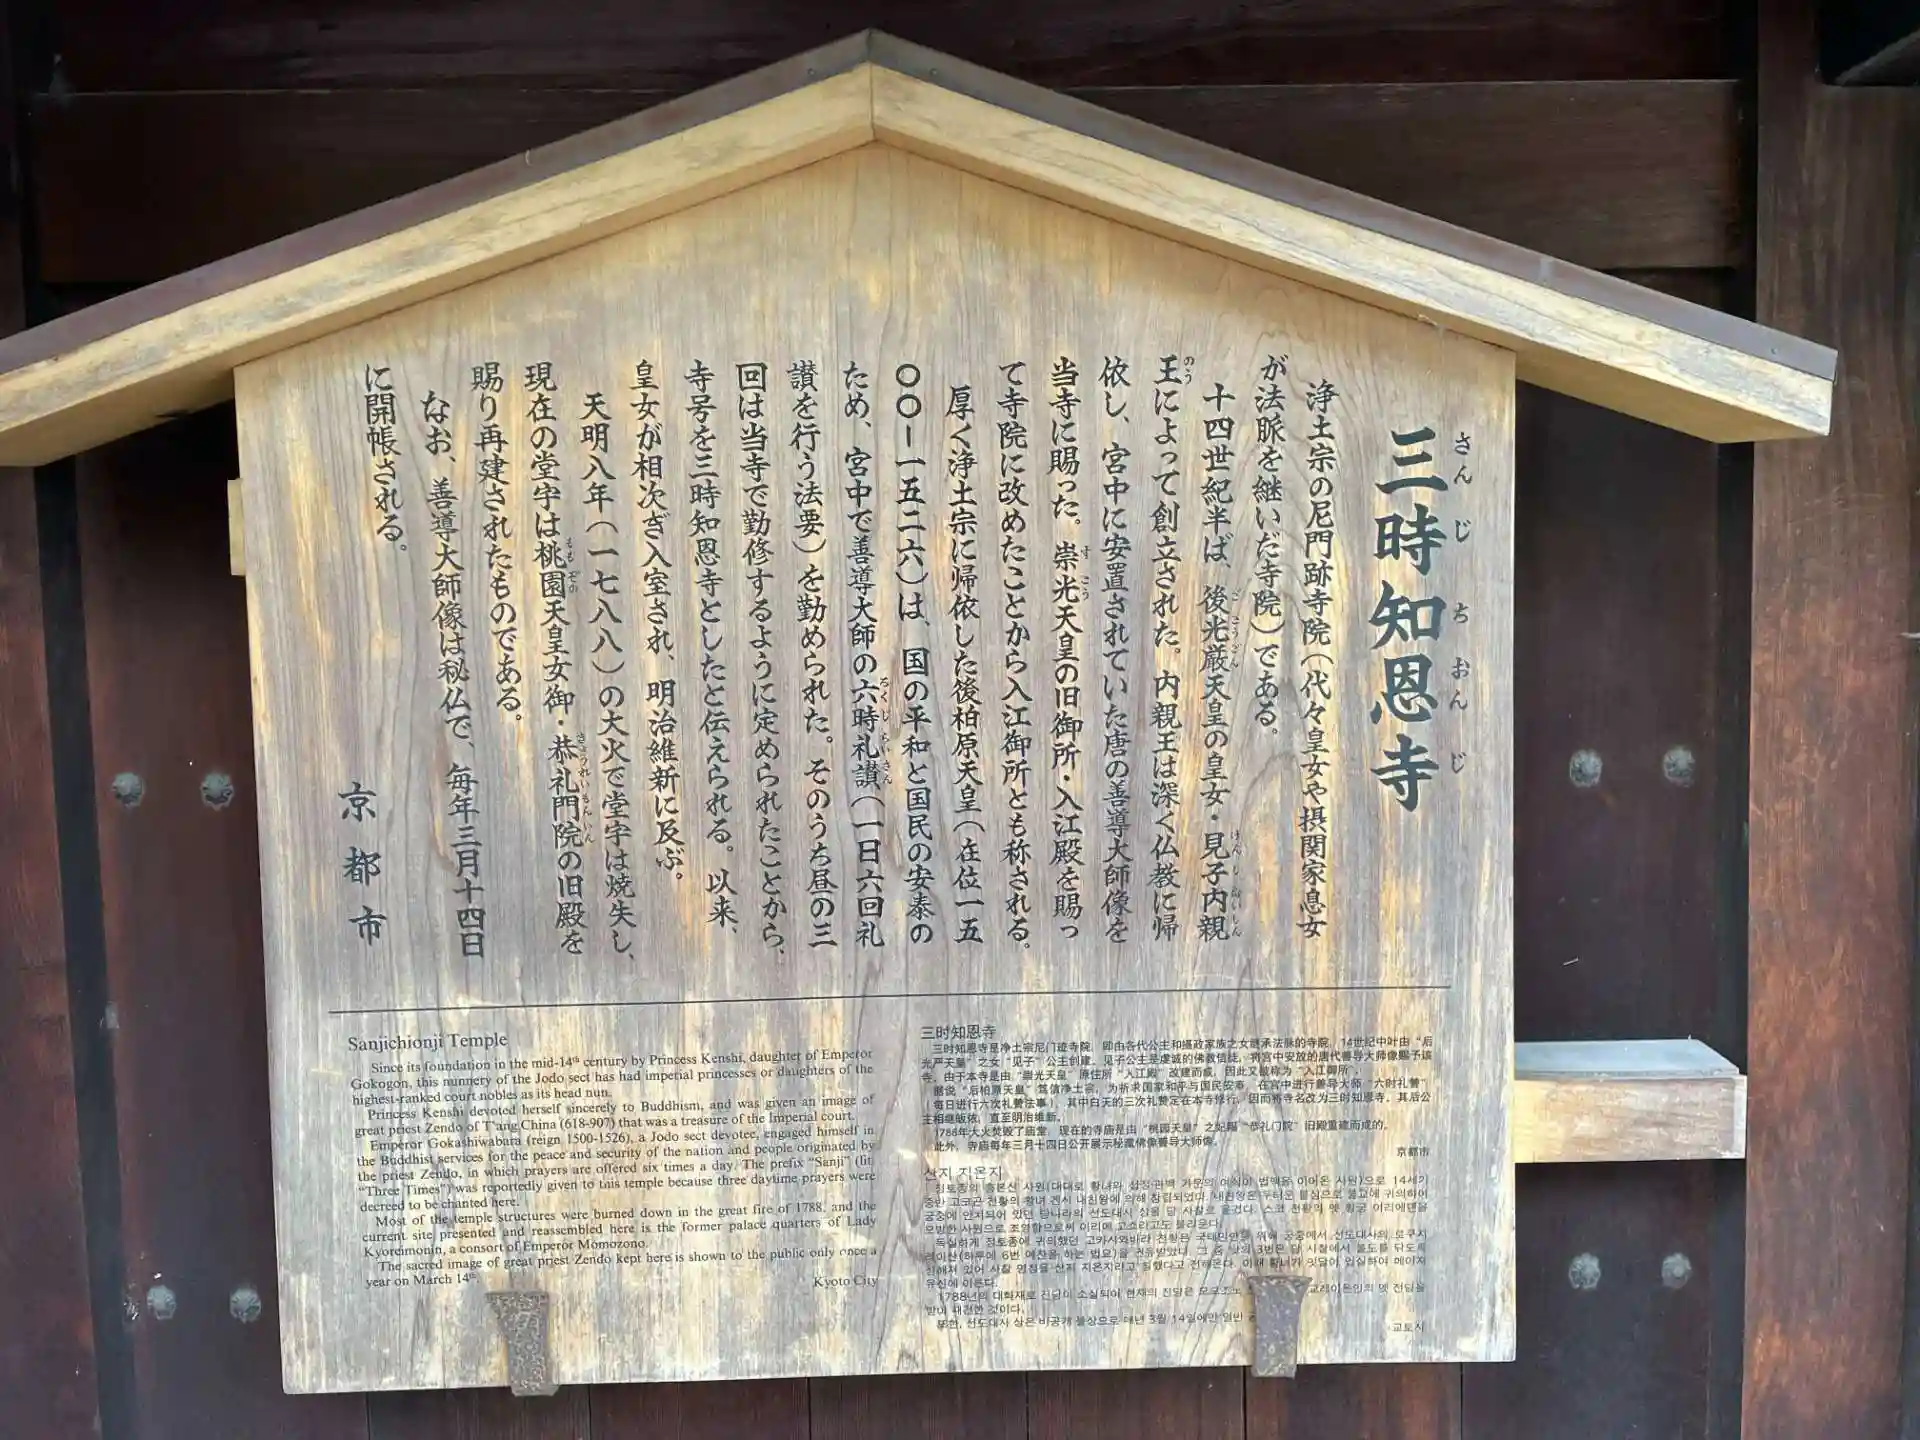 三時知恩寺
さんじちおんじ
浄土宗の尼門跡寺院（代々皇女や摂関家息女
が法脈を継いだ寺院）である。
十四世紀半ば、後光厳天皇の皇女・見子内親
王によって創立された。内親王は深く仏教に帰
依し、宮中に安置されていた唐の善導大師像を
当寺に賜った。崇光天皇の旧御所・入江殿を賜っ
て寺院に改めたことから入江御所とも称される。
厚く浄土宗に帰依した後柏原天皇（在位一五
〇〇ー一五二六）は、国の平和と国民の安泰の
ため、宮中で善導大師の六時礼讃（一日六回礼
讃を行う法要）を勤められた。そのうち昼の三
回は当寺で勤修するように定められたことから、
寺号を三時知恩寺としたと伝えられる。以来、
皇女が相次ぎ入室され、明治維新に及ぶ。
天明八年（一七八八）の大火で堂宇は焼失し、
現在の堂宇は桃園天皇女御・恭礼門院の旧殿を
賜り再建されたものである。
なお、善導大師像は秘仏で、毎年三月十四日
に開帳される。
京都市
Sanjichionji Temple
Since its foundation in the mid-14th century by Princess Kenshi, daughter of Emperor
Gokogon, this nunnery of the Jodo sect has had imperial princesses or daughters of the
highest-ranked court nobles as its head nun.
Princess Kenshi devoted herself sincerely to Buddhism, and was given an image of
great priest Zendo of T'ang China (618-907) that was a treasure of the Imperial court.
Emperor Gokashiwabara (reign 1500-1526), a Jodo sect devotee, engaged himself in
the Buddhist services for the peace and security of the nation and people originated by
the priest Zendo, in which prayers are offered six times a day. The prefix "Sanji" (lit.
"Three Times") was reportedly given to this temple because three daytime prayers were
decreed to be chanted here.
Most of the temple structures were burned down in the great fire of 1788, and the
current site presented and reassembled here is the former palace quarters of Lady
Kyoreimonin, a consort of Emperor Momozono.
The sacred image of great priest Zendo kept here is shown to the public only once a
year on March 14th.
Kyoto City
三时知恩寺
三时知恩寺是净土宗尼门迹寺院，即由各代公主和摄政家族之女继承法脉的寺院。14世纪中叶由“后
光严天皇”之女“见子”公主创建。见子公主是虔诚的佛教信徒，将宫中安放的唐代善导大师像赐予该
寺。由于本寺是由“崇光天皇”原住所“入江殿”改建而成，因此又被称为“入江御所”。
据说“后柏原天皇”笃信净土宗，为祈求国家和平与国民安泰，在宫中进行善导大师“六时礼赞”
（每日进行六次礼赞法事），其中白天的三次礼赞定在本寺修行，因而将寺名改为三时知恩寺。其后公
主相继皈依，直至明治维新。
1788年大火焚毁了庙堂，现在的寺庙是由“桃园天皇”之妃赐“恭礼门院”旧殿重建而成的。
此外，寺庙每年三月十四日公开展示秘藏佛像善导大师像。
京都市
산지 지온지
정토종의 사원(대대로 황녀와 섭정·관백 가문의 여식이 법맥을 이어온 사원)으로 14세기
중반 고코곤 천황의 황녀 겐시 내친왕에 의해 창립되었다. 내친왕은 두터운 불심으로 불교에 귀의하여
궁중에 안치되어 있던 당나라의 선도대사 상을 당 사찰로 옮겼다. 스코 천황의 옛 황궁 이리에덴을
사원으로 이리에 고쇼라고도 불리운다.
독실하게 정토종에 귀의했던 고카시와바라 천황은 국태민안을 위해 궁중에서 선도대사의 로쿠지
라이산(하루에 6번 예찬을 하는 법요)을 그 중 낮의 3번은 당 사찰에서
있어 사찰 명칭을 산지 지온지라고 전해온다. 이래 황녀가 잇달아 입실하여 메이지
유신에 이른다.
1788년의 대화재로 전당이 소실되어 현재의 전당은 모모조노 교레이몬인의 옛 전당을
받아 재건한 것이다.
또한, 선도대사 상은 비공개 불상으로 매년 3월 14일에만 일반
교토시